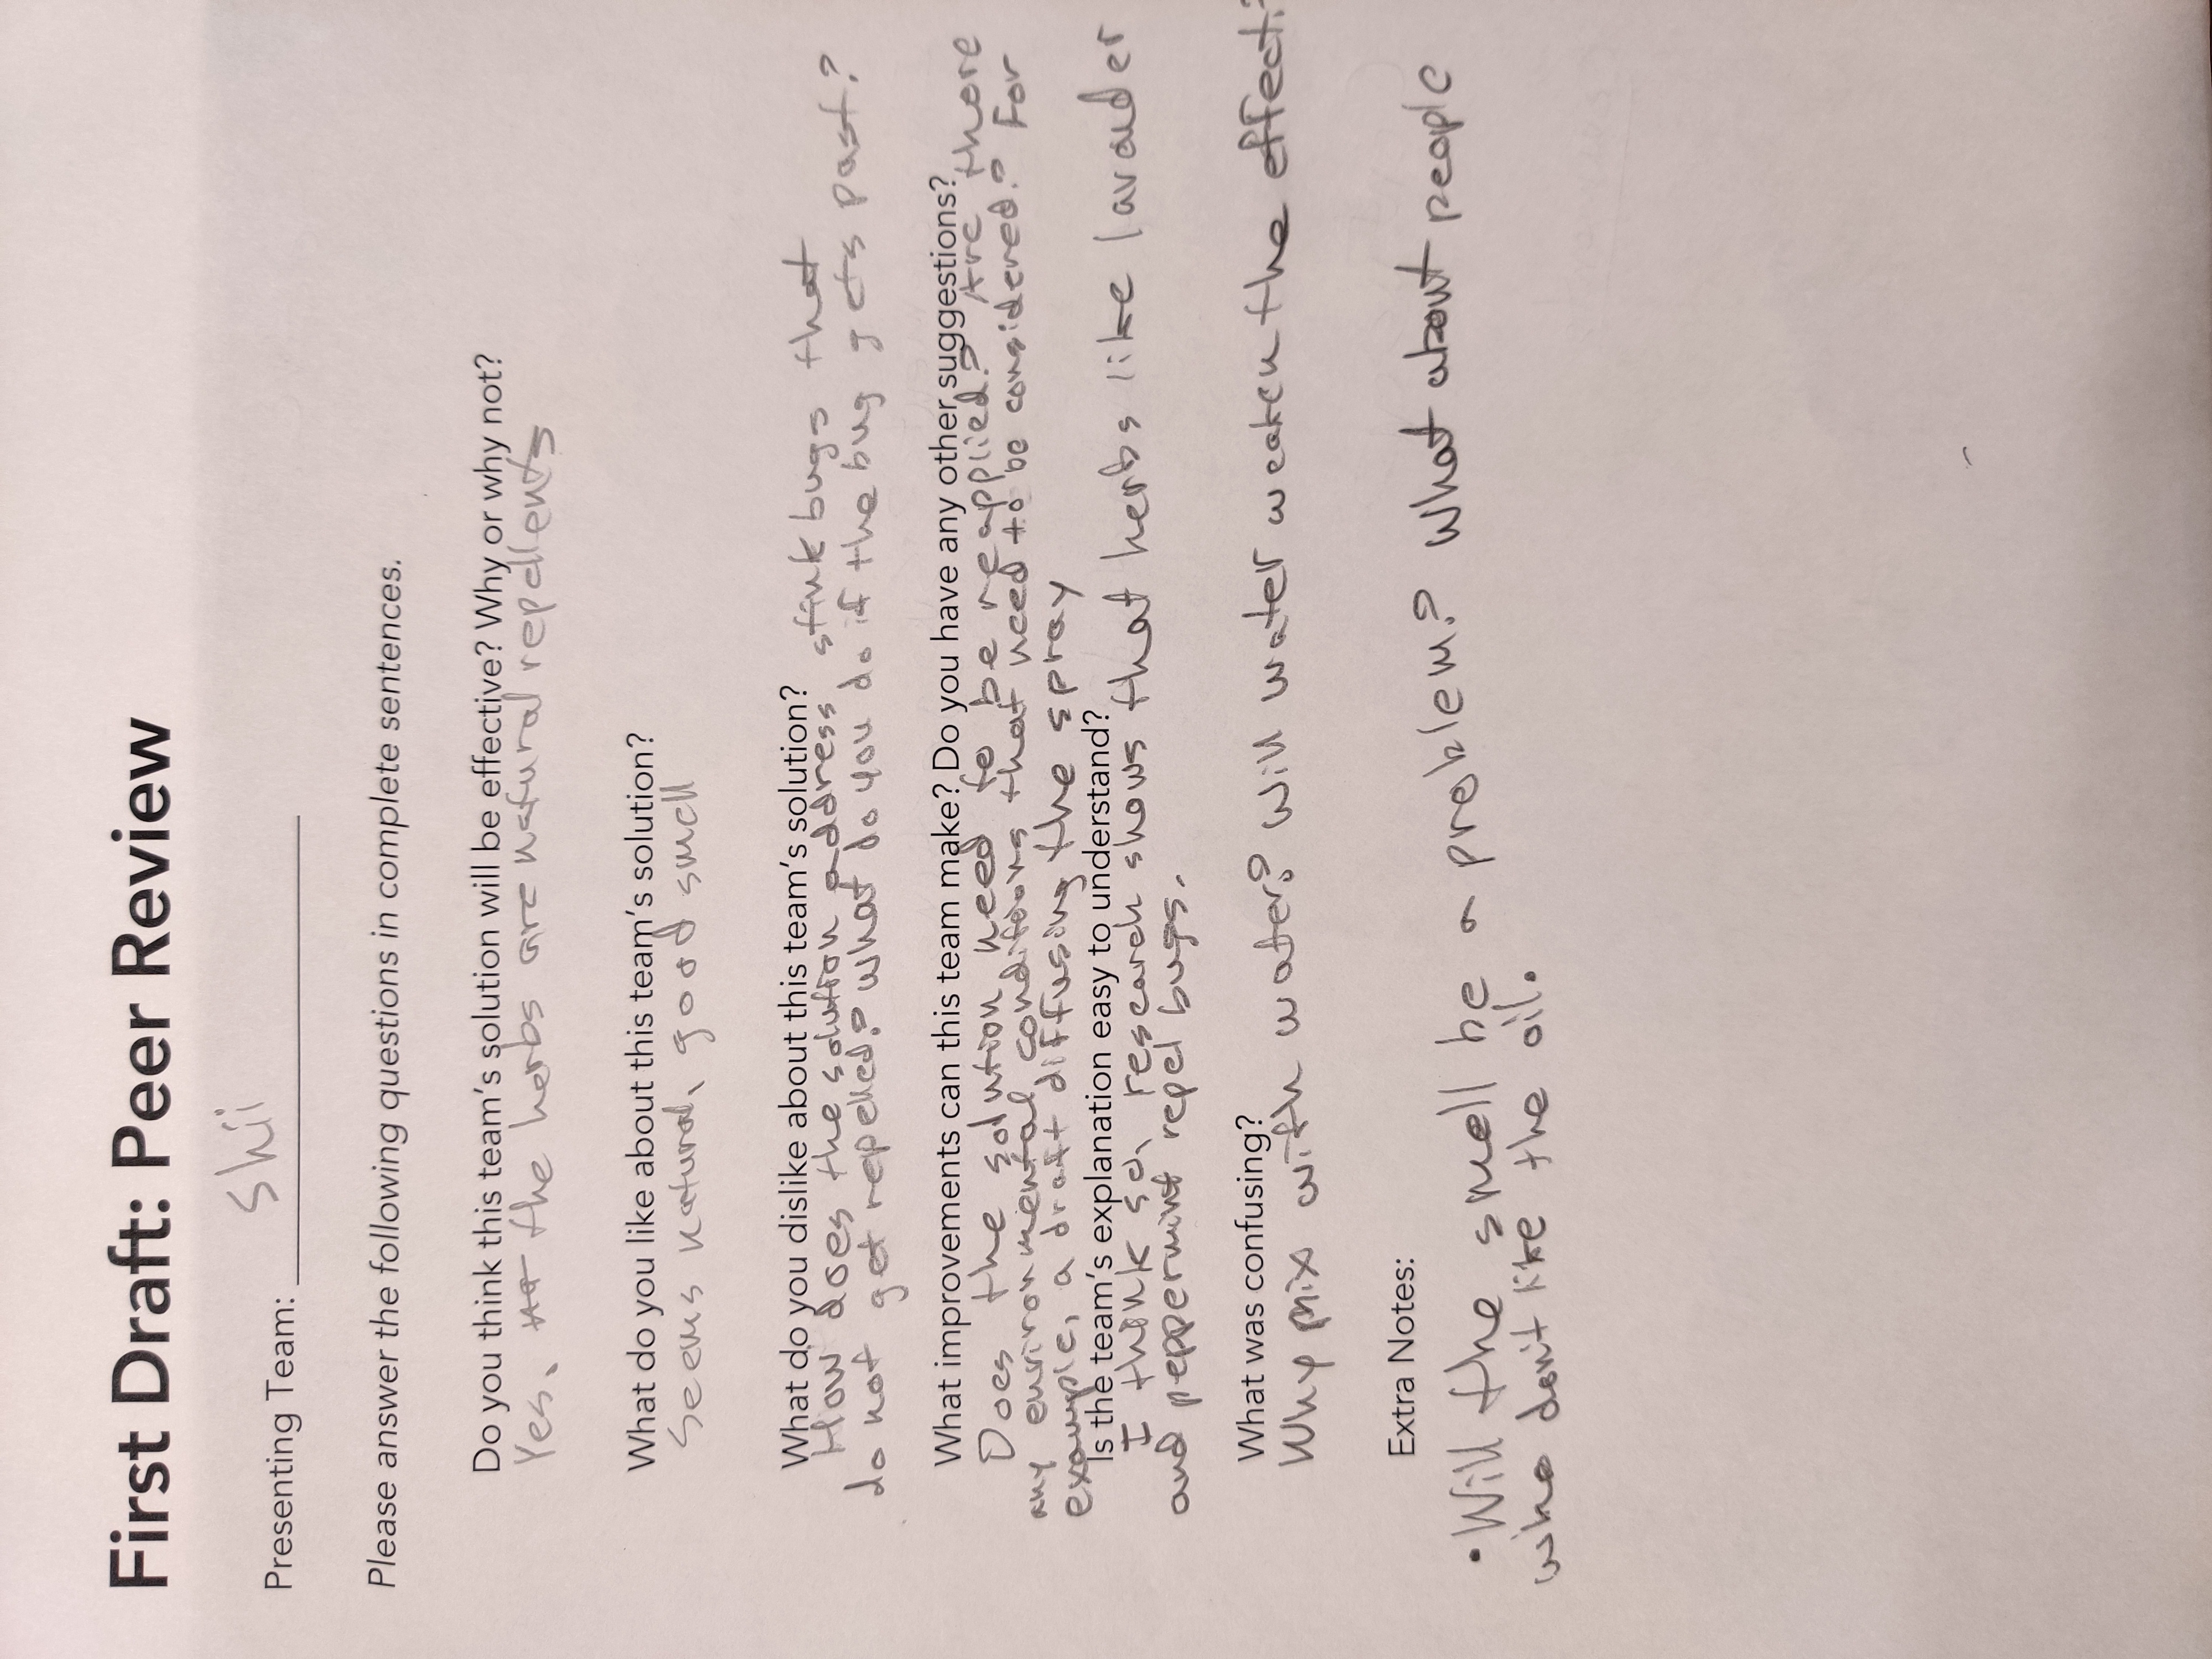 First Draft: Peer Review
Presenting Team: Shii
Please answer the following questions in complete sentences.
Do you think this team's solution will be effective? Why or why not?
Yes. the herbs are natural repellents
What do you like about this team's solution?
Seems natural, good smell
What do you dislike about this team's solution?
How does the solution address stink bugs that
do not get repelled? What do you do if the bug gets past?
What improvements can this team make? Do you have any other suggestions?
Does the solution need to be reapplied? Are there
any environmental conditions that need to be considered? For
example, a draft diffusing the spray
Is the team's explanation easy to understand?
I think so, research shows that herbs like lavander
and peppermint repel bugs.
What was confusing?
Why mix with water? Will water weaken the effect?
Extra Notes:
• Will the smell be a problem? What about people
who don't like the oil.